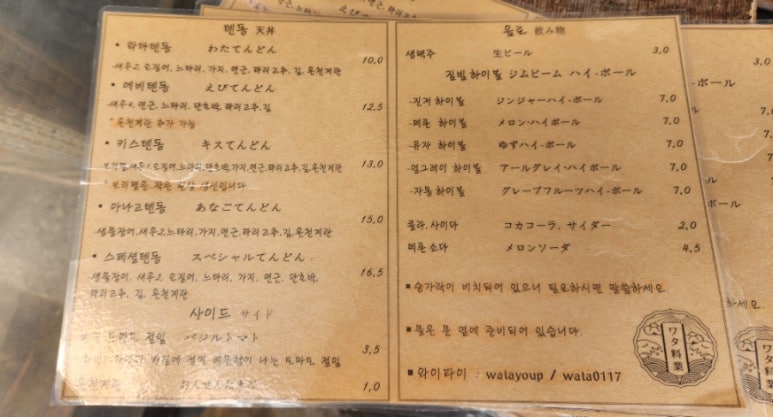 텐동 天丼
• 와타텐동 わたてんどん 10,0
새우2, 오징어, 느타리, 가지, 연근, 꽈리고추, 김, 온천계란
• 에비텐동 えびてんどん 12,5
새우4, 연근, 느타리, 단호박, 꽈리고추, 김
* 온천계란 추가 가능
• 키스텐동 キスてんどん 13,0
오징어, 느타리, 단호박, 가지, 연근, 꽈리고추, 김, 온천계란
* 보리멸은 작은 흰살 생선입니다
• 아나고텐동 あなごてんどん 15,0
새우2, 느타리, 가지, 연근, 꽈리고추, 김, 온천계란
• 스페셜텐동 スペシャルてんどん 16,5
새우2, 오징어, 느타리, 가지, 연근, 단호박,
꽈리고추, 김, 온천계란
사이드 サイド
토마토 절임 バジルトマト
토마토 절임 3,5
온천계란 1,0
음료 飲み物
생맥주 生ビール 3,0
짐빔 하이볼 ジムビーム ハイ-ボール
-진저 하이볼 ジンジャーハイ-ボール 7,0
-메론 하이볼 メロン・ハイボール 7,0
-유자 하이볼 ゆずハイ-ボール 7,0
-얼그레이 하이볼 アールグレイ・ハイボール 7,0
-자몽 하이볼 グレープフルーツハイ-ボール 7,0
콜라, 사이다 コカコーラ, サイダー 2,0
메론소다 メロンソーダ 4,5
■ 숟가락이 비치되어 있으니 필요하시면 말씀하세요.
■ 물은 문 옆에 준비되어 있습니다.
■ 와이파이 : watayoup / wata0117
ワタ料業
-ボール
7,0
7,0
7,0
ボール
7,0
ボール
7,0
2,0
4,5
하세요.